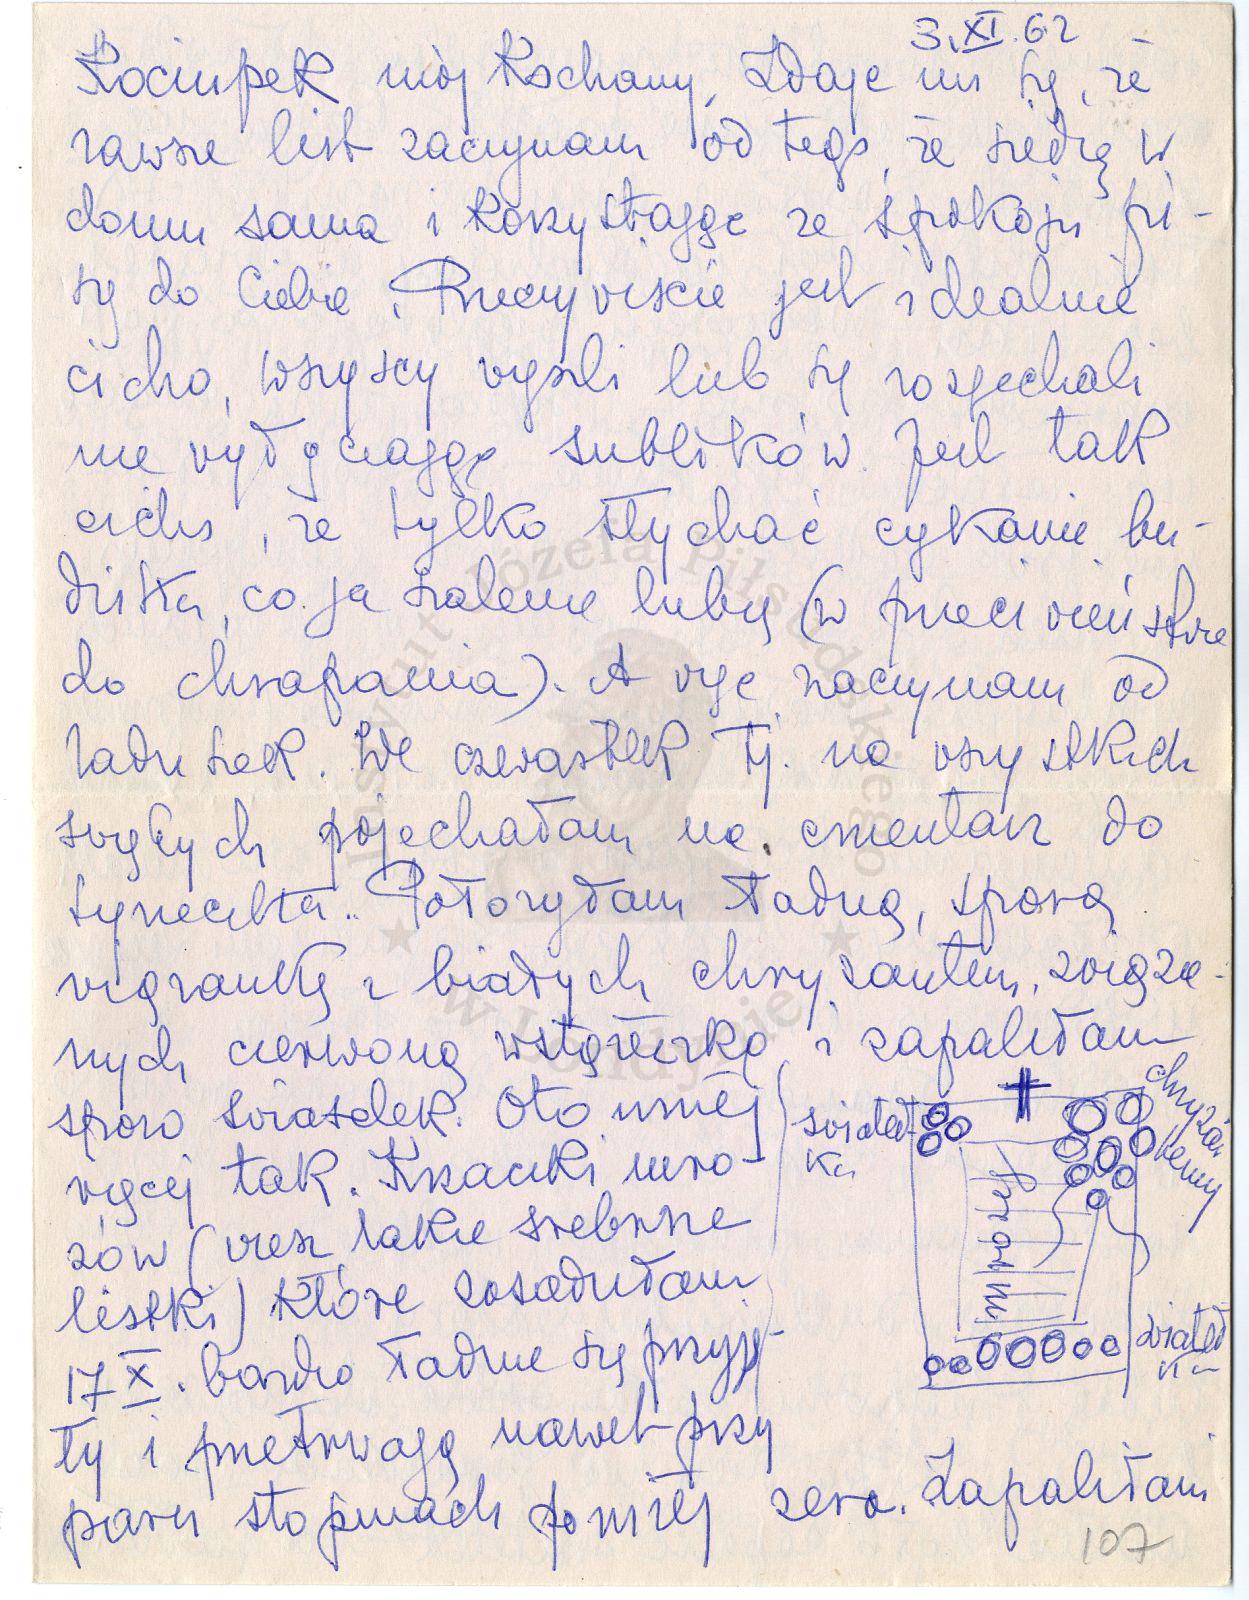 3.XI.62
Kociupek mój Kochany, Zdaje mi się, że
zawsze list zaczynam od tego, że siedzę w
domu sama i korzystając ze spokoju pi-
szę do Ciebie. Rzeczywiście jest idealnie
cicho, wszyscy wyszli lub się rozjechali
nie wyłączając subloków. Jest tak
cicho, że tylko słychać cykanie bu-
dzika, co ja szalenie lubię (w przeciwieństwie
do chrapania). A więc zaczynam od
We czwartek tj. na wszystkich
świętych pojechałam na cmentarz do
Syneczka. Położyłam ładną, sporą
wiązankę z białych chryzantem, związa-
nych czerwoną wstążeczką i zapaliłam
sporo światełek. Oto mniej
więcej tak. Krzaczki mro-
zów (wiesz takie srebrne
listki) które zasadziłam
17 X. bardzo ładnie się przyję-
ły i przetrwają nawet przy
paru stopniach poniżej zera. Zapaliłam
świateł-
ka
chryzan
temy
mrozy
świateł
ka
107
Instytut Józefa Piłsudskiego
w Londynie